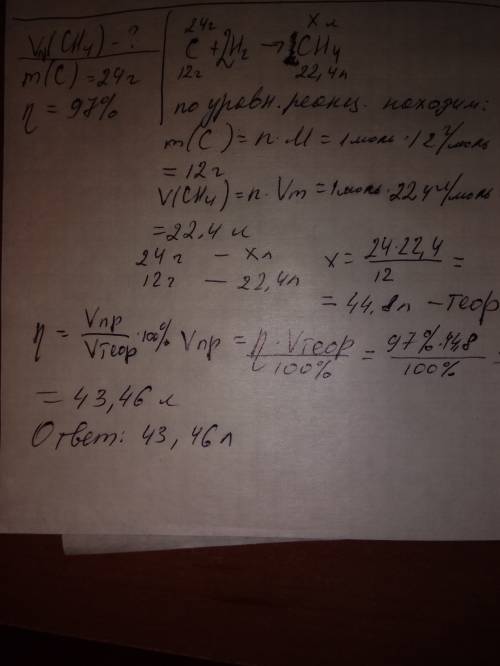 Vn(CH4) - ?
m(C) = 24г
η = 97%
24г x л
C + 2H2 → CH4
12г 22,4л
по уравн. реакц. находим:
m(C) = n · M = 1моль · 12 г/моль
= 12г
V(CH4) = n · Vm = 1моль · 22,4 л/моль
= 22,4 л
24 г — x л
12 г — 22,4л
x = 24·22,4 / 12 =
= 44,8л – теор
η = Vпр / Vтеор · 100% Vпр = η · Vтеор / 100% = 97% · 44,8 / 100% =
= 43,46 л
Ответ: 43,46л